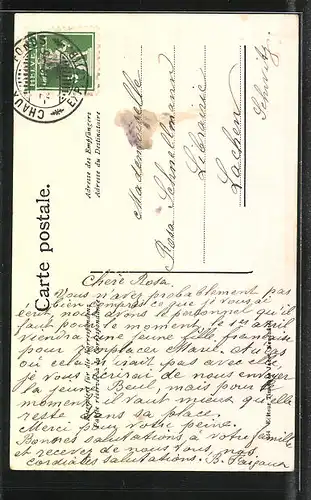 CHAUX-DE-FONDS
HELVETIA
Carte postale.
Adresse des Empfängers
Adresse du Destinataire
Mademoiselle
Rosa Schnellmann
Librairie
Lachen
Schwitz.
Chère Rosa.
Vous n'avez probablement pas
bien compris ce que je vous ai
écrit, nous avons le personnel qu'il
faut pour le moment, le 1er avril
viendra une jeune fille française
pour remplacer Marie. Alors
où cela n'irait pas avec elle
je vous écrirai de nous envoyer
la jeune Beul, mais pour le
moment il vaut mieux qu'elle
reste dans sa place.
Merci pour votre peine.
Bonnes salutations à votre famille
et recevez de nous vous, nos
cordiales salutations. B.